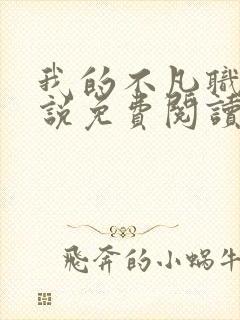 我的不凡職
説免費閱讀
飛奔的小蝸牛